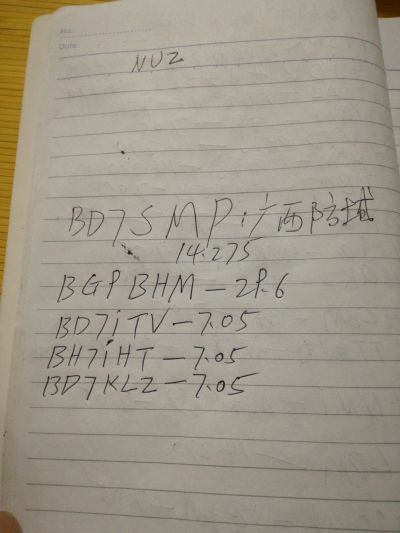 No.
Date
NUZ
BD7SMP:广西防城
14.275
BG9BHM—29.6
BD7iTV—7.05
BH7iHT—7.05
BD7KLZ—7.05